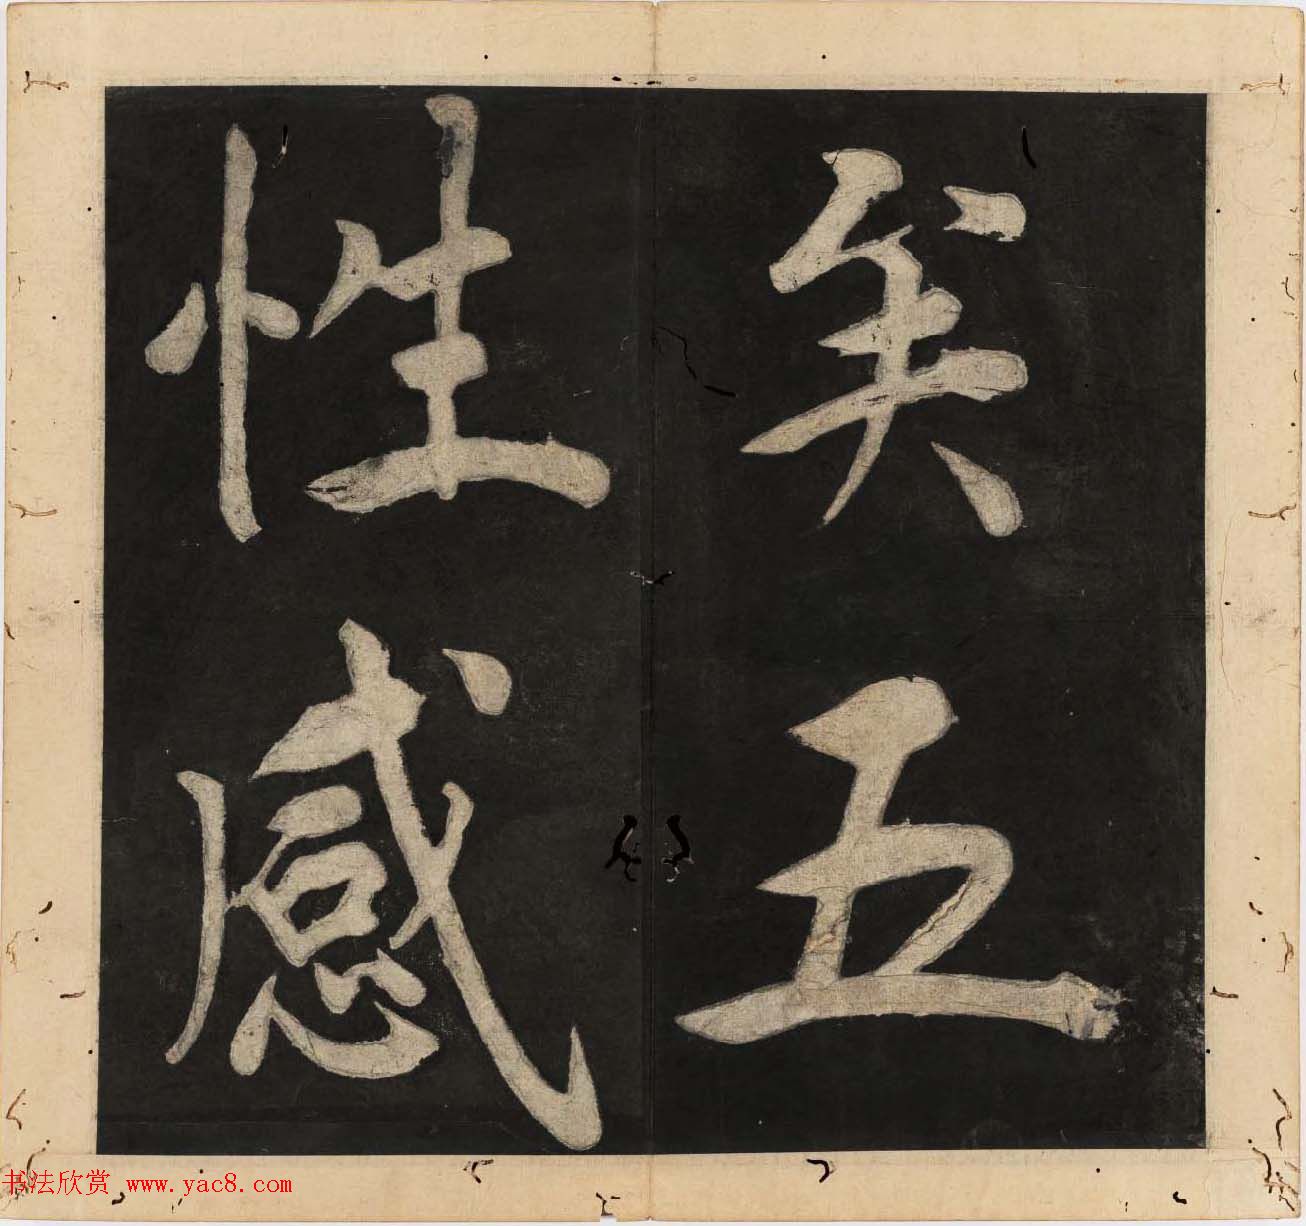 矣五
性感
书法欣赏 www.yac8.com